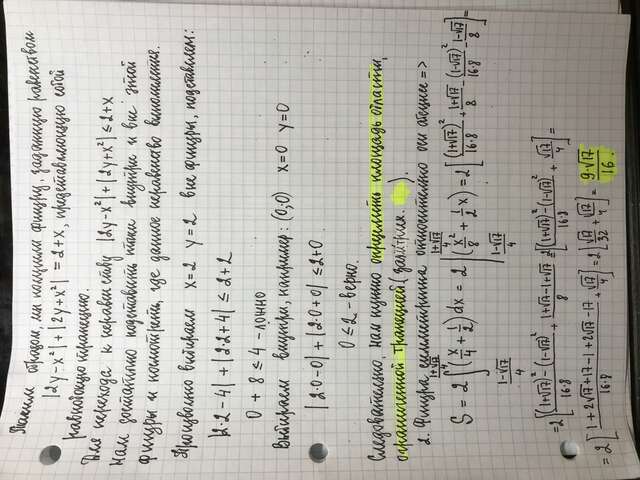 Таким образом, мы получили фигуру, заданную равенством
|2y-x²|+|2y+x²| = 2+x, представляющую собой
равнобокую трапецию.
Для перехода к неравенству |2y-x²|+|2y+x²| ≤ 2+x
нам достаточно подставить точки внутри и вне этой
фигуры и посмотреть, где данное неравенство выполняется.
Произвольно выбираем x=2 y=2 вне фигуры, подставляем:
|2·2-4|+|2·2+4| ≤ 2+2
0+8 ≤ 4 - ложно
Выбираем внутри, например: (0;0) x=0 y=0
|2·0-0|+|2·0+0| ≤ 2+0
0 ≤ 2 - верно.
Следовательно, нам нужно определить площадь области,
ограниченной трапецией
2. Фигура симметрична относительно оси абсцисс =>
S = 2 ∫ (x/4 + 1/2) dx = 2 | (x²/8 + 1/2 x) = 2 [ (1+√17)²/16·8 + 1+√17/8 - (1-√17)²/16·8 - 1-√17/8 ] =
1+√17/4
1-√17/4
1+√17/4
1-√17/4
= 2 [ (1+√17)²-(1-√17)²/16·8 + 1+√17-1+√17/8 ] = 2 [ (1+√17)²-(1-√17)²/16·8 + √17/4 ] =
= 2 [ 1+2√17+17-1+2√17-17/16·8 + √17/4 ] = 2 [ √17/32 + √17/4 ] = 9√17/16.